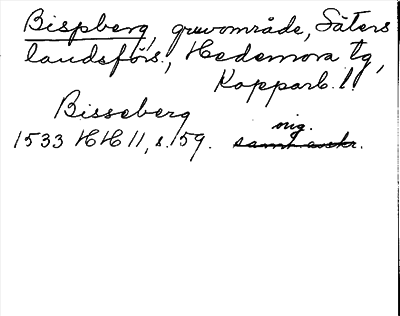 Bispberg, gruvområde, Säters
landsförs., Hedemora tg,
Kopparb. l.
Bisseberg
orig.
1533 HH 11, s. 159. samt avskr.